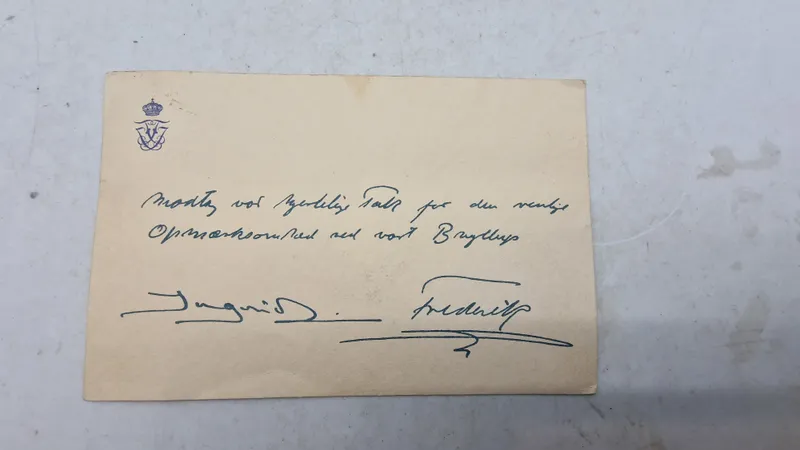 Modtag vor hjertelige Tak for den venlige
Opmærksomhed ved vort Bryllup
Ingrid. Frederik